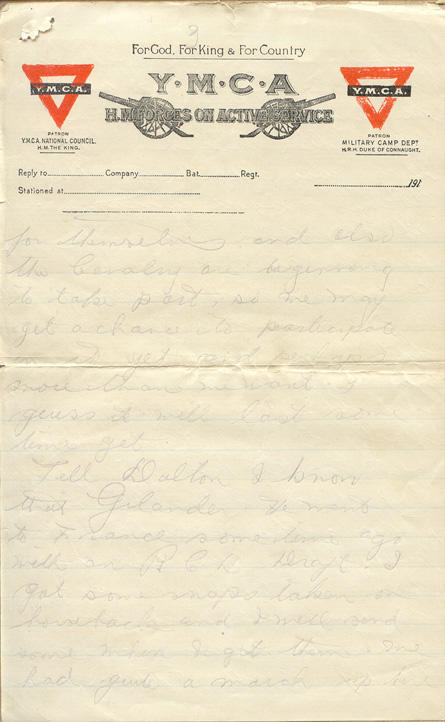 3
For God, For King & For Country
Y.M.C.A.
Y·M·C·A
Y.M.C.A.
H.M. FORCES ON ACTIVE SERVICE
PATRON
Y.M.C.A. NATIONAL COUNCIL.
H.M. THE KING.
PATRON
MILITARY CAMP DEPT
H.R.H. DUKE OF CONNAUGHT.
Reply to Company Bat. Regt.
Stationed at 191
for themselves, and also
the Cavalry are beginning
to take part, so we may
get a chance to participate
in it yet and perhaps
more than we want. I
geuss it will last some
time yet.
Tell Dalton I know
that Gilander. He went
to France some time ago
with an R C D Draft. I
got some snaps taken on
horseback and I will send
some when I get them. We
had quite a march up here